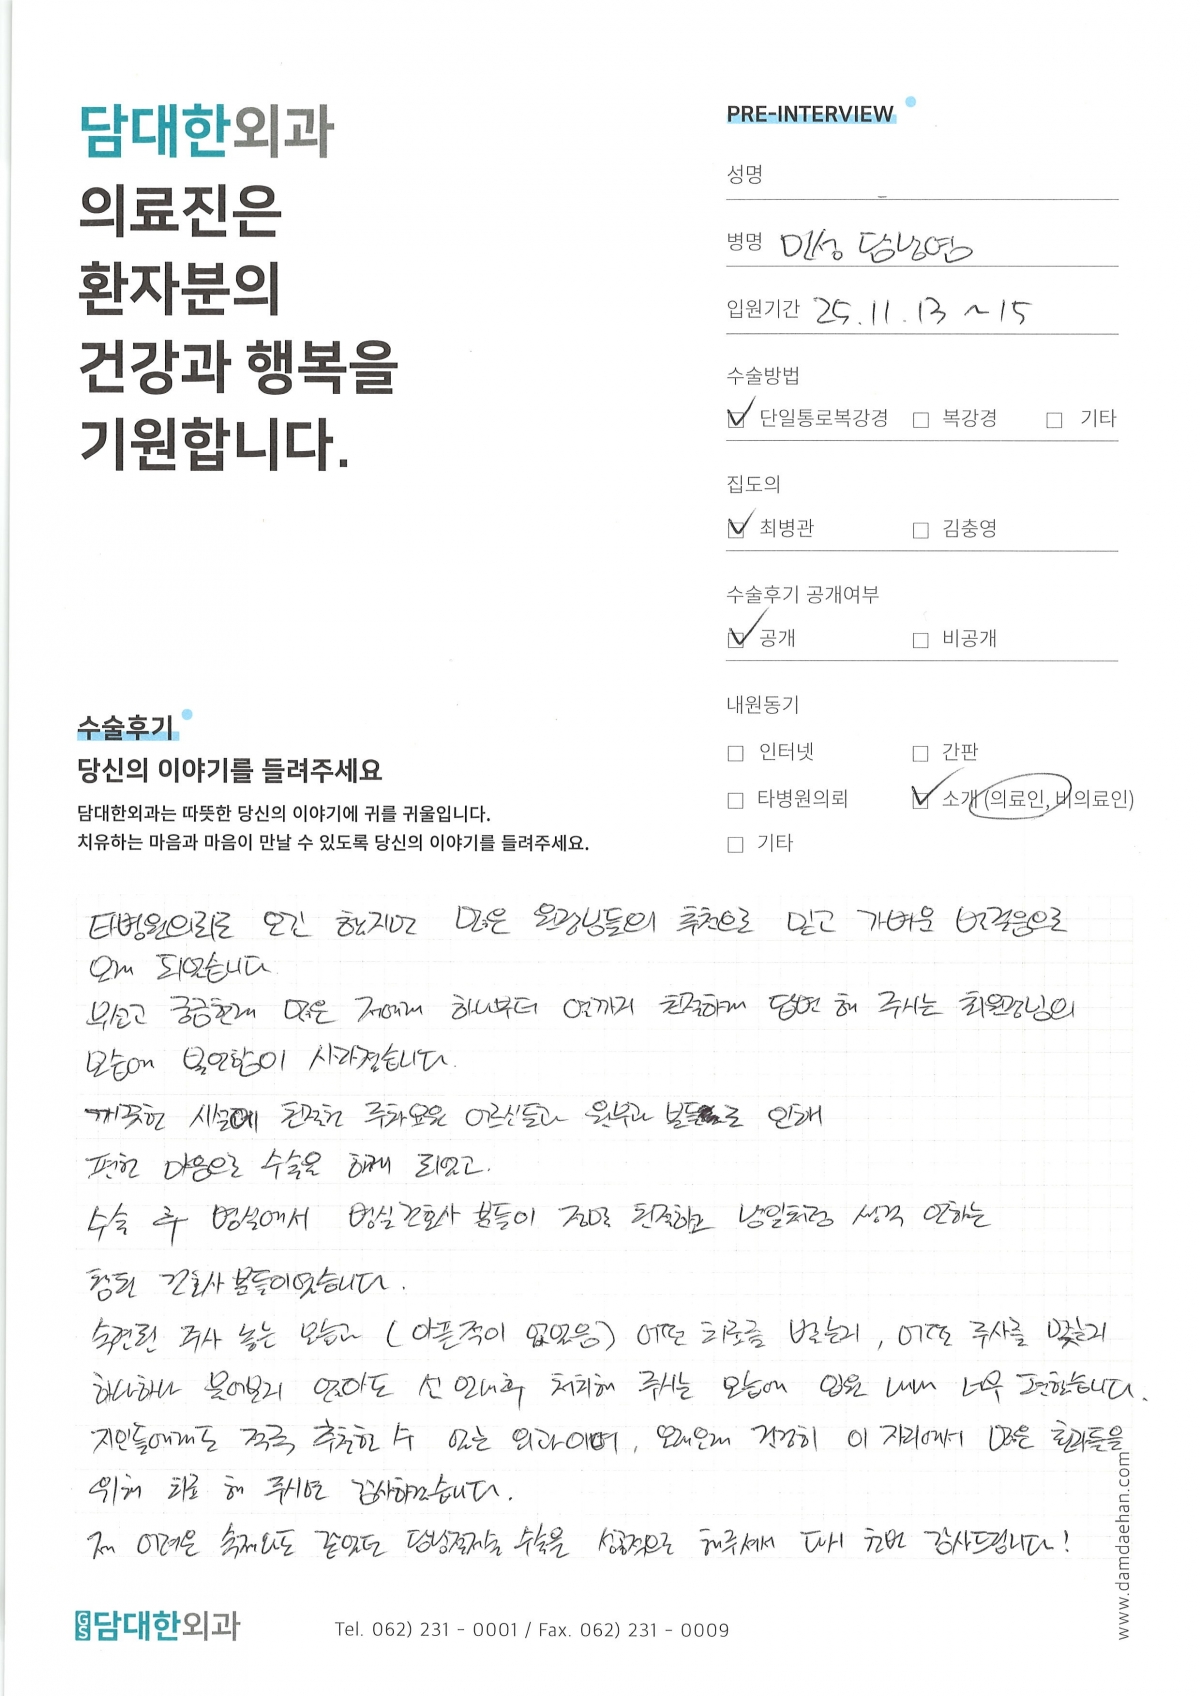 담대한외과
의료진은
환자분의
건강과 행복을
기원합니다.
PRE-INTERVIEW
성명
병명 만성 담낭염
입원기간 25.11.13 ~ 15
수술방법
단일통로복강경 복강경 기타
집도의
최병관 김충영
수술후기 공개여부
공개 비공개
내원동기
인터넷 간판
타병원의뢰 소개 (의료인, 비의료인)
기타
수술후기
당신의 이야기를 들려주세요
담대한외과는 따뜻한 당신의 이야기에 귀를 귀울입니다.
치유하는 마음과 마음이 만날 수 있도록 당신의 이야기를 들려주세요.
타병원의뢰로 오긴 했지만 많은 원장님들의 추천으로 믿고 가벼운 발걸음으로
오게 되었습니다
무섭고 궁금한게 많은 저에게 하나부터 열까지 친절하게 답변 해 주시는 최원장님의
모습에 불안함이 사라졌습니다.
깨끗한 시설에 친절한 주차요원 어르신들과 원무과 분들로 인해
편한 마음으로 수술을 하게 되었고.
수술 후 병실에서 병실간호사 분들이 정말로 친절하고 남일처럼 생각 안하는
참된 간호사 분들이었습니다.
숙련된 주사 놓는 모습과 (아픈적이 없었음) 어떤 치료를 받는지, 어떤 주사를 맞는지
하나하나 물어보지 않아도 선 안내후 처치해 주시는 모습에 입원 내내 너무 편했습니다.
지인들에게도 적극 추천할 수 있는 외과이며, 오래오래 건강히 이 자리에서 많은 환자들을
위해 치료 해 주시면 감사하겠습니다.
제 어려운 숙제와도 같았던 담낭절제술 수술을 성공적으로 해주셔서 다시 한번 감사드립니다!
GS 담대한외과
Tel. 062) 231 - 0001 / Fax. 062) 231 - 0009
www.damdaehan.com